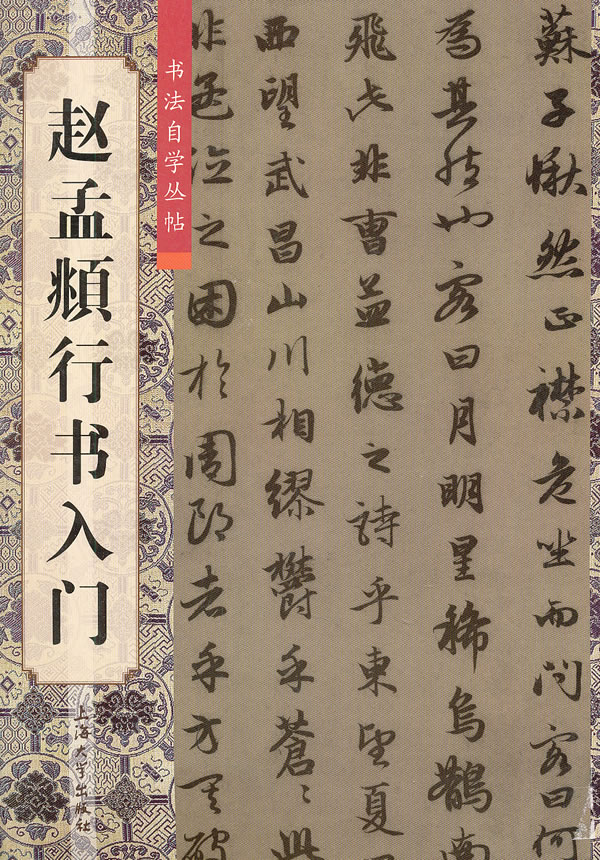 书法自学丛帖
赵孟頫行书入门
上海大学出版社
蘇子愀然正襟危坐而問客曰何
為其然也客曰月明星稀烏鵲南
飛此非曹孟德之詩乎東望夏
西望武昌山川相繆鬱乎蒼〻此
非孟德之困於周郎者乎方其破